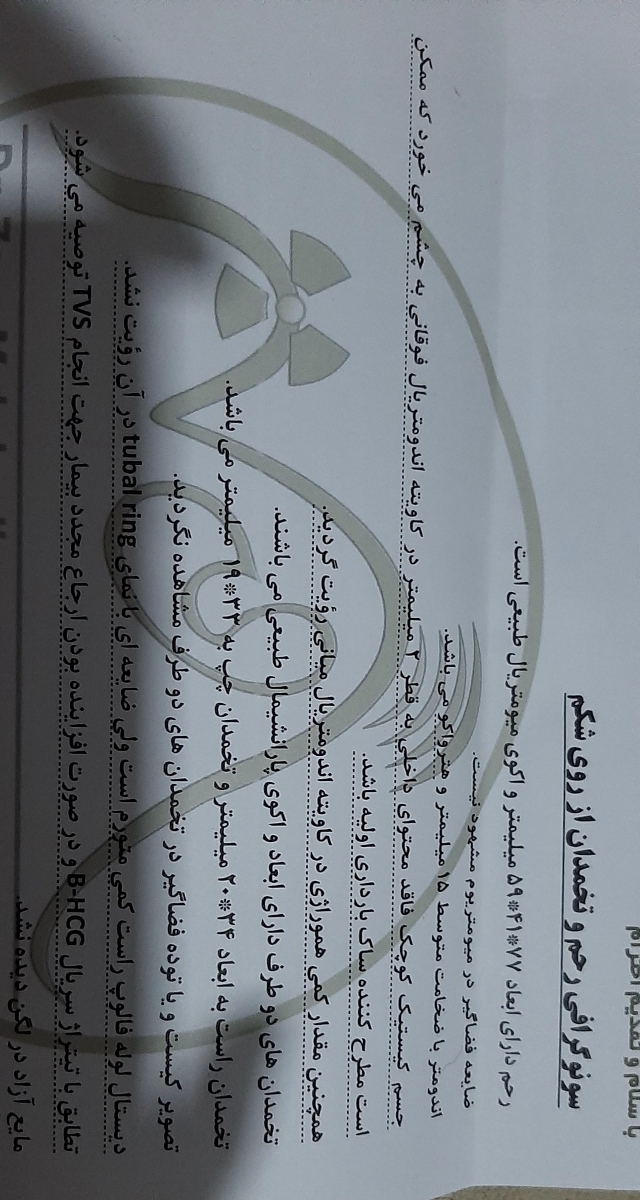 با سلام و تقدیم احترام
سونوگرافی رحم و تخمدان از روی شکم
رحم دارای ابعاد ۷۷*۴۱*۵۹ میلیمتر و اکوی میومتریال طبیعی است.
ضایعه فضاگیر در میومتریوم مشهود نیست.
اندومتر با ضخامت متوسط ۱۵ میلیمتر و هترواکو می باشد.
جسم کیستیک کوچک فاقد محتوای داخلی به قطر ۲ میلیمتر در کاویته اندومتریال فوقانی به چشم می خورد که ممکن
است مطرح کننده ساک بارداری اولیه باشد.
همچنین مقدار کمی هموراژی در کاویته اندومتریال میانی رؤیت گردید.
تخمدان های دو طرف دارای ابعاد و اکوی پارانشیمال طبیعی می باشند.
تخمدان راست به ابعاد ۳۴*۲۰ میلیمتر و تخمدان چپ به ۳۳*۱۹ میلیمتر می باشد.
تصویر کیست و یا توده فضاگیر در تخمدان های دو طرف مشاهده نگردید.
دیستال لوله فالوپ راست کمی متورم است ولی ضایعه ای با نمای tubal ring در آن رؤیت نشد.
تطابق با تیتراژ سریال B-HCG و در صورت افزاینده بودن ارجاع مجدد بیمار جهت انجام TVS توصیه می شود.
مایع آزاد در لگن دیده نشد.